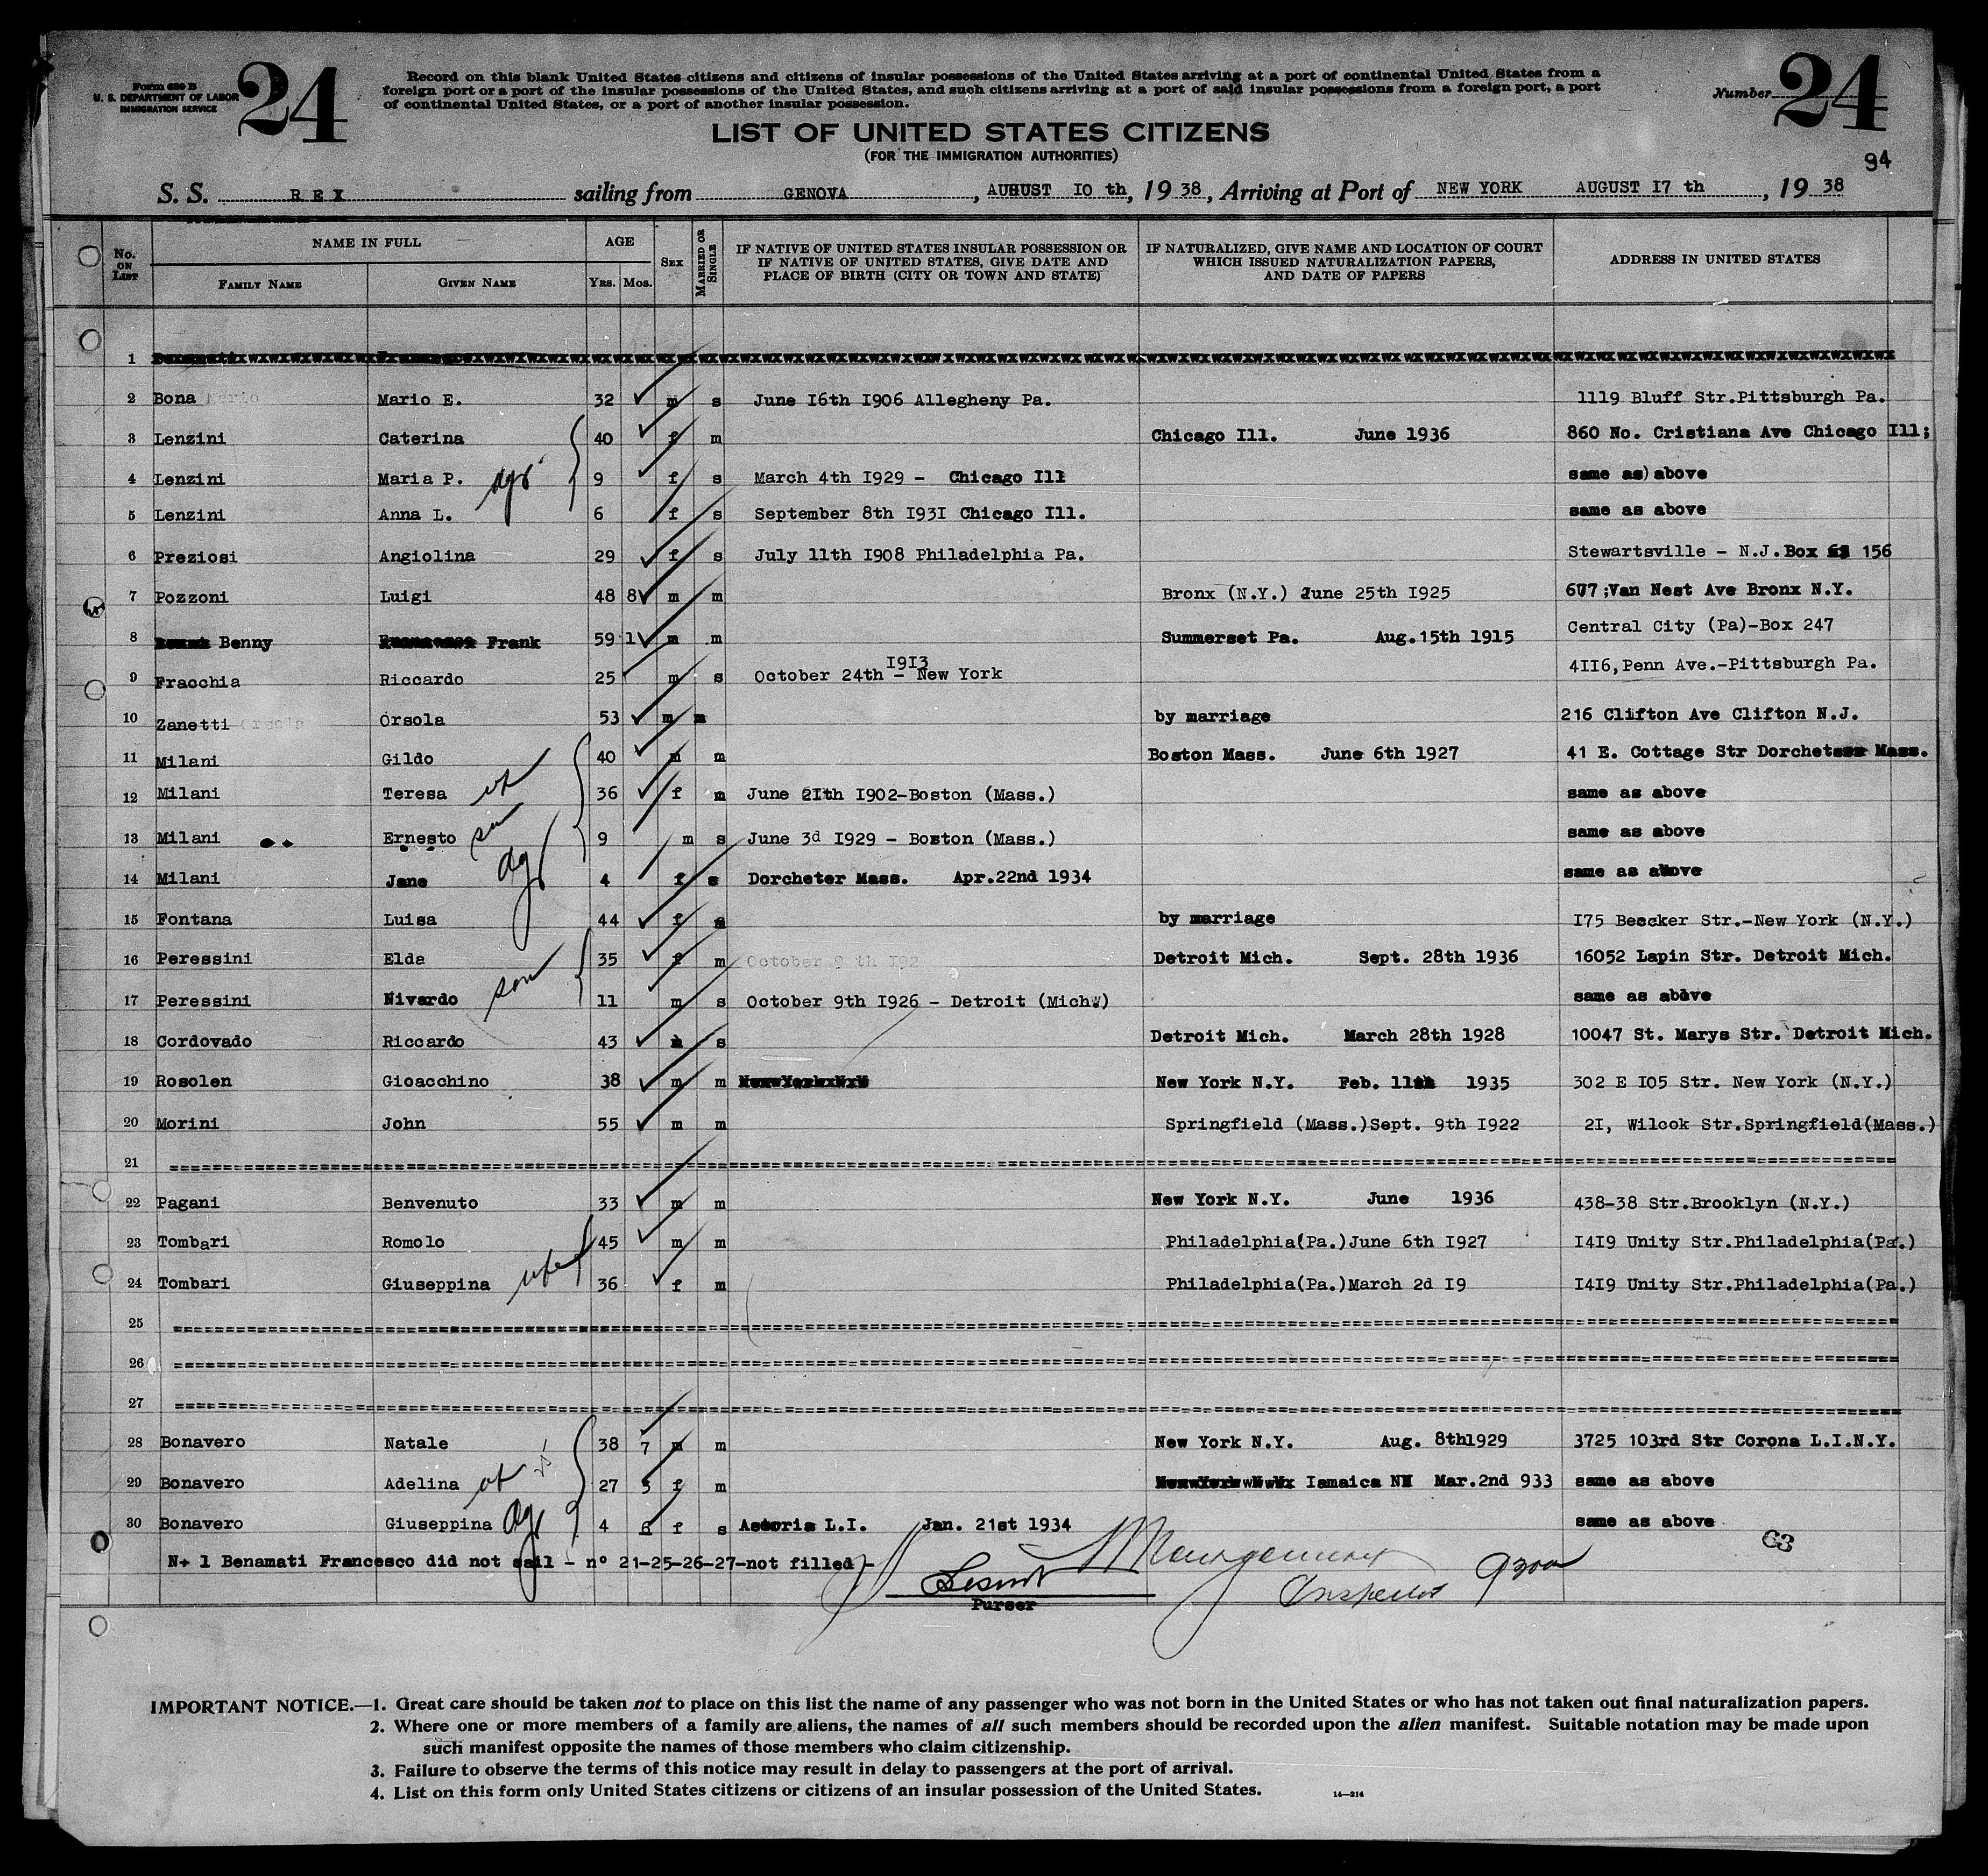 Form 630 B
U. S. DEPARTMENT OF LABOR
IMMIGRATION SERVICE
24
Record on this blank United States citizens and citizens of insular possessions of the United States arriving at a port of continental United States from a
foreign port or a port of the insular possessions of the United States, and such citizens arriving at a port of said insular possessions from a foreign port, a port
of continental United States, or a port of another insular possession.
Number 24
94
LIST OF UNITED STATES CITIZENS
(FOR THE IMMIGRATION AUTHORITIES)
S. S. REX sailing from GENOVA, AUGUST 10 th, 19 38, Arriving at Port of NEW YORK AUGUST 17 th, 19 38
No. ON LIST NAME IN FULL AGE SEX MARRIED OR SINGLE IF NATIVE OF UNITED STATES INSULAR POSSESSION OR IF NATIVE OF UNITED STATES, GIVE DATE AND PLACE OF BIRTH (CITY OR TOWN AND STATE) IF NATURALIZED, GIVE NAME AND LOCATION OF COURT WHICH ISSUED NATURALIZATION PAPERS, AND DATE OF PAPERS ADDRESS IN UNITED STATES
FAMILY NAME GIVEN NAME YRS. MOS.
1
2 Bona Mario E. 32 m s June 16th 1906 Allegheny Pa. 1119 Bluff Str.Pittsburgh Pa.
3 Lenzini Caterina 40 f m Chicago Ill. June 1936 860 No. Cristiana Ave Chicago Ill;
4 Lenzini Maria P. 9 f s March 4th 1929 - Chicago Ill same as) above
5 Lenzini Anna L. 6 f s September 8th 1931 Chicago Ill. same as above
6 Preziosi Angiolina 29 f s July 11th 1908 Philadelphia Pa. Stewartsville - N.J. Box 156
7 Pozzoni Luigi 48 8 m m Bronx (N.Y.) June 25th 1925 677 ;Van Nest Ave Bronx N.Y.
8 Benny Frank 59 1 m m Summerset Pa. Aug.15th 1915 Central City (Pa)-Box 247
9 Fracchia Riccardo 25 m s October 24th 1913 - New York 4116,Penn Ave.-Pittsburgh Pa.
10 Zanetti Orsola 53 m m by marriage 216 Clifton Ave Clifton N.J.
11 Milani Gildo 40 m m Boston Mass. June 6th 1927 41 E. Cottage Str Dorchester Mass.
12 Milani Teresa 36 f m June 21th 1902-Boston (Mass.) same as above
13 Milani Ernesto 9 m s June 3d 1929 - Boston (Mass.) same as above
14 Milani Jane 4 f s Dorcheter Mass. Apr.22nd 1934 same as above
15 Fontana Luisa 44 f by marriage 175 Beecker Str.-New York (N.Y.)
16 Peressini Elda 35 f m October 9 th 192 Detroit Mich. Sept. 28th 1936 16052 Lapin Str. Detroit Mich.
17 Peressini Nivardo son 11 m s October 9th 1926 - Detroit (Mich.) same as above
18 Cordovado Riccardo 43 m s Detroit Mich. March 28th 1928 10047 St. Marys Str. Detroit Mich.
19 Rosolen Gioacchino 38 m m New York N.Y. Feb. 11th 1935 302 E 105 Str. New York (N.Y.)
20 Morini John 55 m m Springfield (Mass.)Sept. 9th 1922 21, Wilcok Str.Springfield(Mass.)
21
22 Pagani Benvenuto 33 m m New York N.Y. June 1936 438-38 Str.Brooklyn (N.Y.)
23 Tombari Romolo 45 m m Philadelphia(Pa.)June 6th 1927 1419 Unity Str.Philadelphia(Pa.)
24 Tombari Giuseppina wife 36 f m Philadelphia(Pa.)March 2d 19 1419 Unity Str.Philadelphia(Pa.)
25
26
27
28 Bonavero Natale 38 7 m m New York N.Y. Aug. 8th1929 3725 103rd Str Corona L.I.N.Y.
29 Bonavero Adelina 27 3 f m Iamaica NY Mar.2nd 933 same as above
30 Bonavero Giuseppina 4 6 f s Astoria L.I. Jan. 21st 1934 same as above
63
N+ 1 Benamati Francesco did not sail - n° 21-25-26-27-not filled -
Purser
Inspector
IMPORTANT NOTICE.—1. Great care should be taken not to place on this list the name of any passenger who was not born in the United States or who has not taken out final naturalization papers.
2. Where one or more members of a family are aliens, the names of all such members should be recorded upon the alien manifest. Suitable notation may be made upon
such manifest opposite the names of those members who claim citizenship.
3. Failure to observe the terms of this notice may result in delay to passengers at the port of arrival.
4. List on this form only United States citizens or citizens of an insular possession of the United States.
14—214